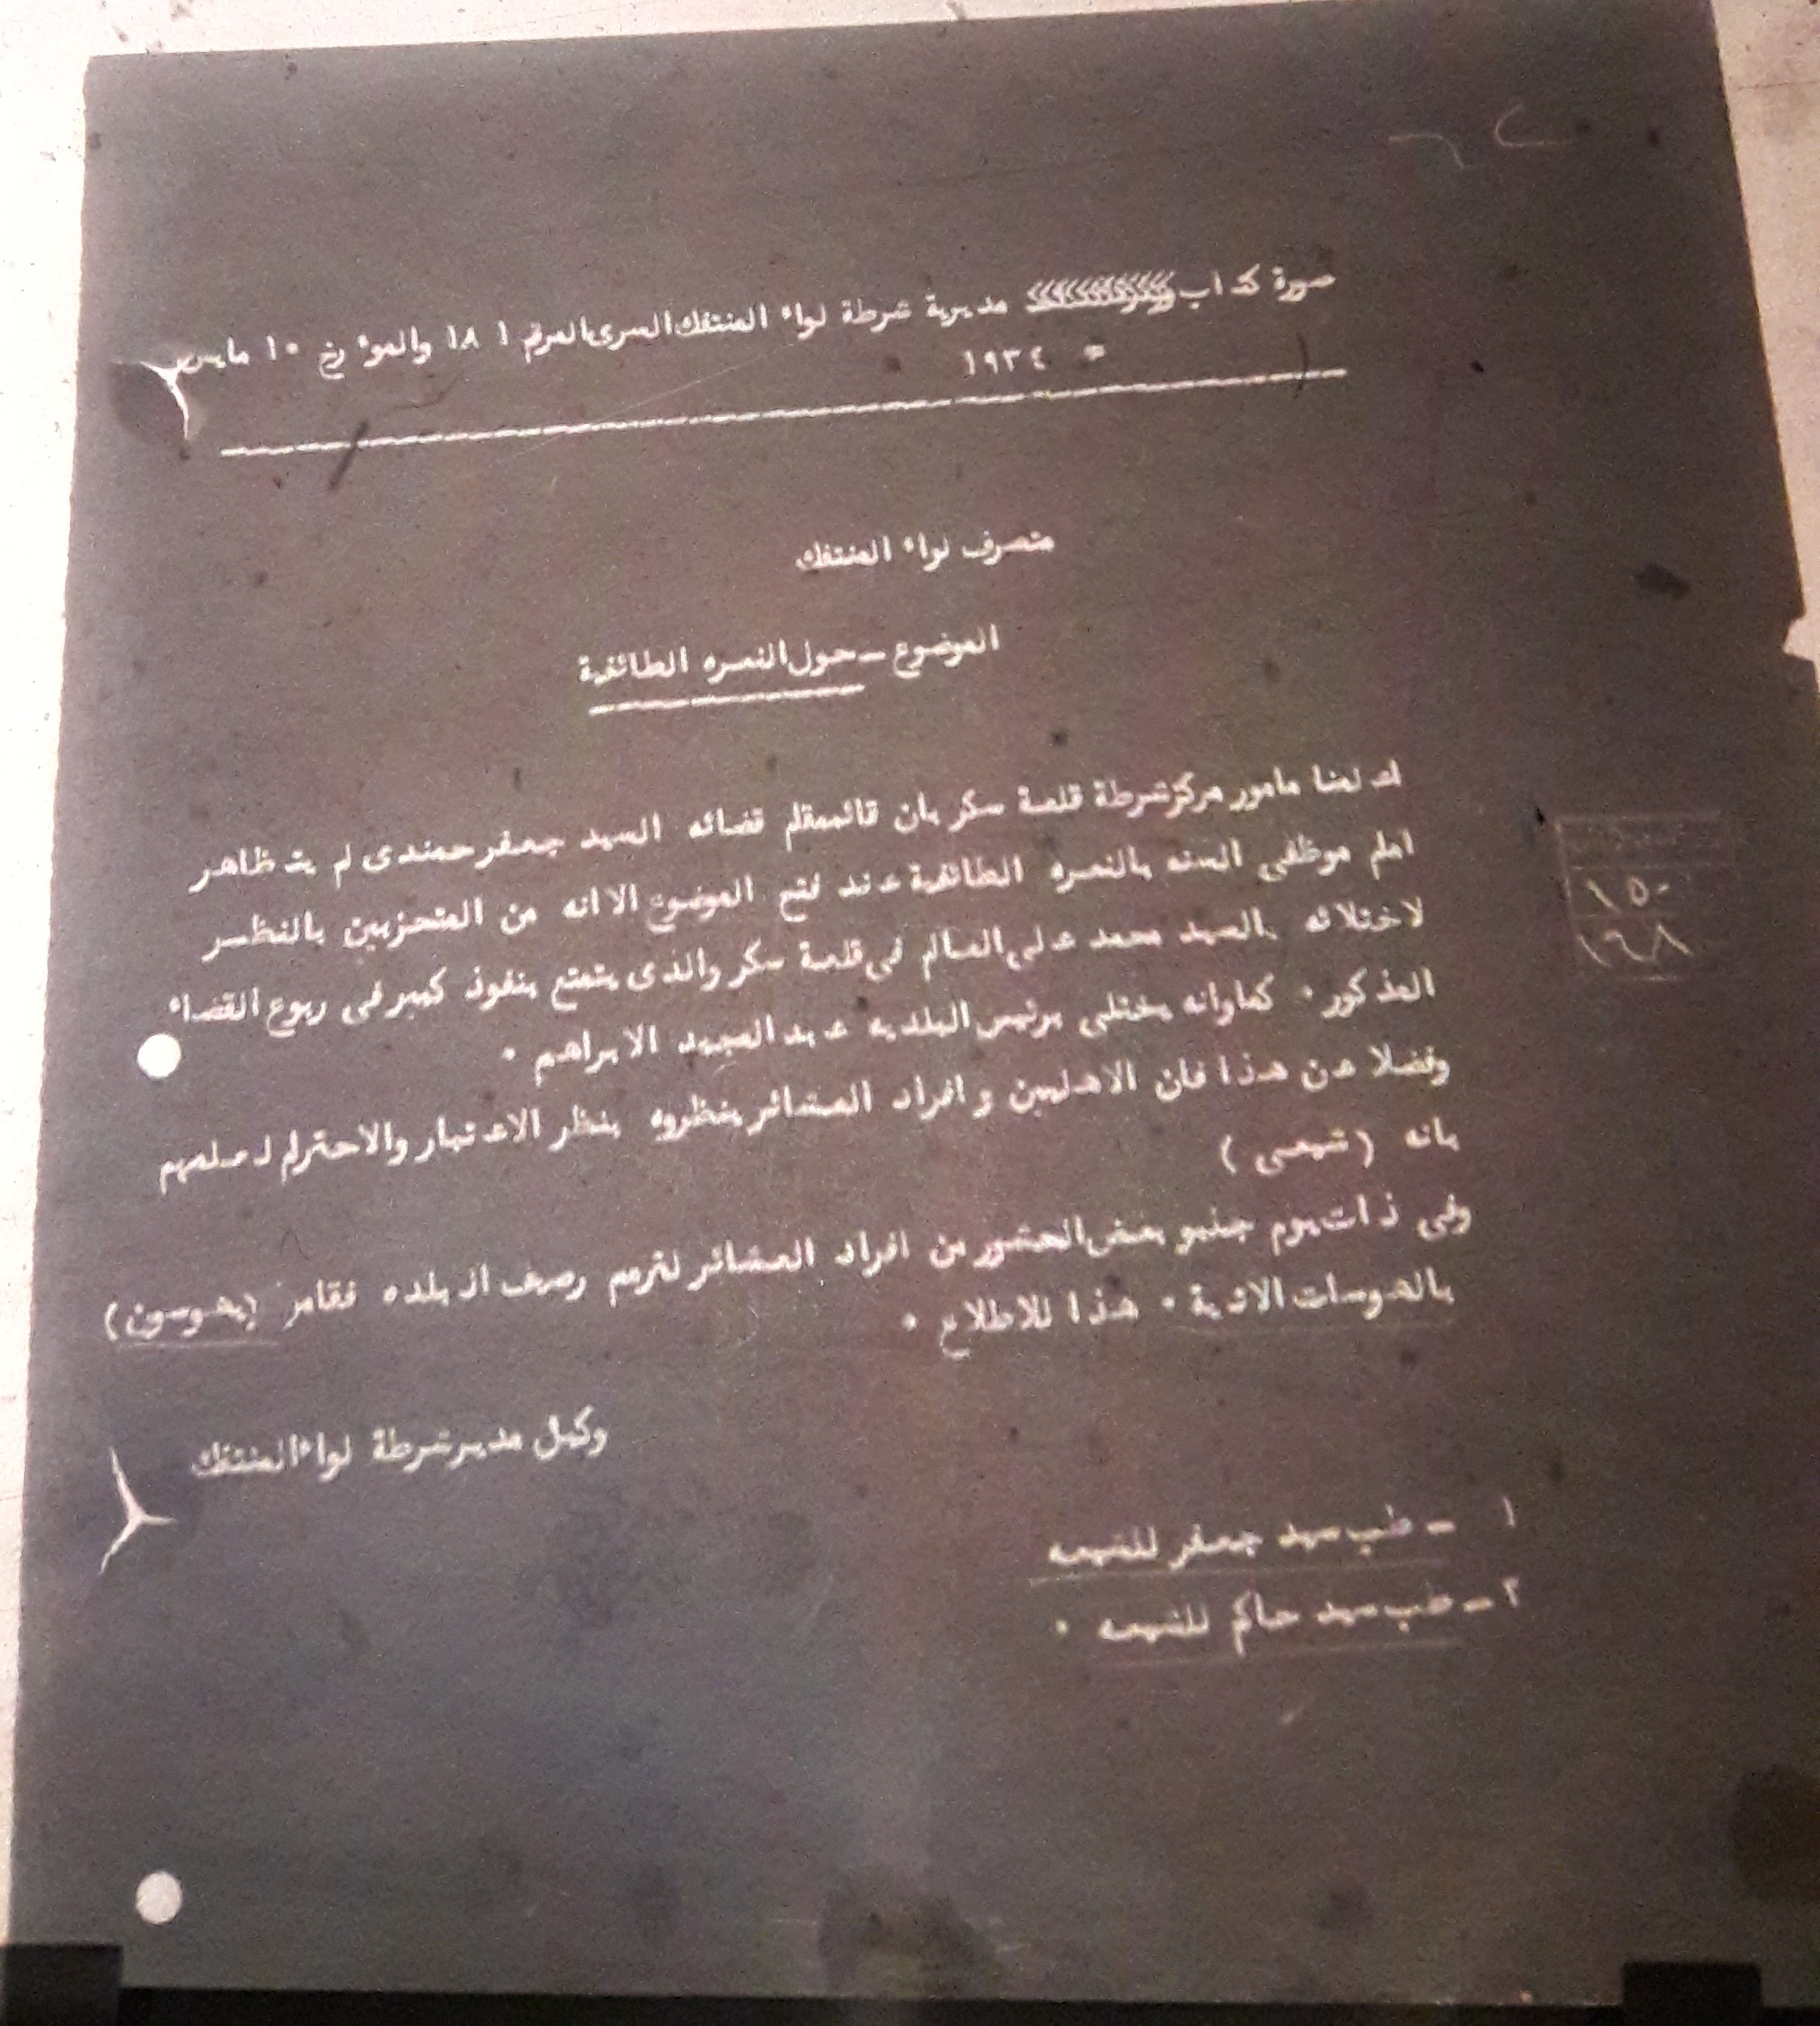 صورة كتاب مديرية شرطة لواء المنتفك السرى المرقم ١٨١ والموءرخ ١٠ مايس
١٩٣٤
متصرف لواء المنتفك
الموضوع ــ حول النعره الطائفية
مامور مركز شرطة قلعة سكر بان قائممقام قضائه السيد جعفر حمندى لم يتظاهر
امام موظفى السنه بالنعره الطائفية عند فتح الموضوع الا انه من المتحزبين بالنظر
لاختلائه بالسيد محمد على العالم فى قلعة سكر والذى يتمتع بنفوذ كبير فى ربوع القضاء
المذكور ٠ كما وانه يختلى برئيس البلديه عبد المجيد الابراهم ٠
وفضلا عن هذا فان الاهليين و افراد العشائر ينظروه بنظر الاعتبار والاحترام لعلمهم
بانه (شيعى)
وفى ذات يوم بعض الحشور من افراد العشائر لترميم رصيف البلده فقامر (يهوسون)
بالهوسات الاتية ٠ هذا للاطلاع ٠
وكيل مدير شرطة لواء المنتفك
١ ــ طب سيد جعفر للشيعه
٢ ــ طب سيد حاكم للشيعه ٠
١٥٠
١٦٨